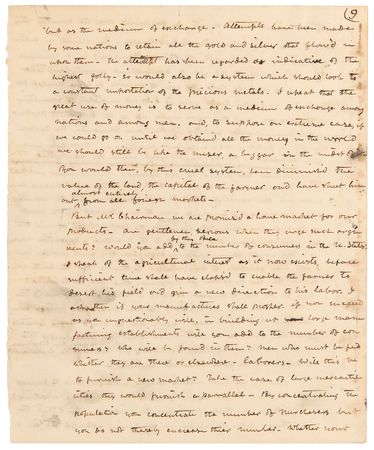 9
but as the medium of exchange - Attempts have been made
by some nations to retain all the gold and silver that flow'd in
upon them - The attempt has been regarded as indicative of the
highest folly - so would also be a system which should look to
a constant importation of the precious metals. I repeat that the
great use of money is to serve as a medium of exchange among
nations and among men, and, to suppose an extreme case, if
we could go on until we obtain all the money in the world
we should still be like the miser, a beggar in the midst of
You would then, by this cruel system, have diminish'd the
value of the land, the capital of the farmer and have shut him
almost entirely
out, from all foreign markets -
But Mr Chairman we are promised a home market for our
products - Are gentlemen serious when they urge such argu
by this Bill
ments? Would you add, to the number of consumers in the U. States;
I speak of the agricultural interest as it now exists, before
sufficient time shall have elapsed to enable the farmer to
desert his field and give a new direction to his labor. I
ask if your manufactures shall prosper, if you succeed
as you unquestionably will, in building up large manu
facturing establishments will you added to the number of con
sumers? Who will be found in them? Men who must be fed
whether they are there or elsewhere - laborers - Will this be
to furnish a new market? Take the case of large mercantile
cities they would furnish a parallel - By concentrating the
population you concentrate the number of purchasers but
you do not thereby encrease their number. Whether your